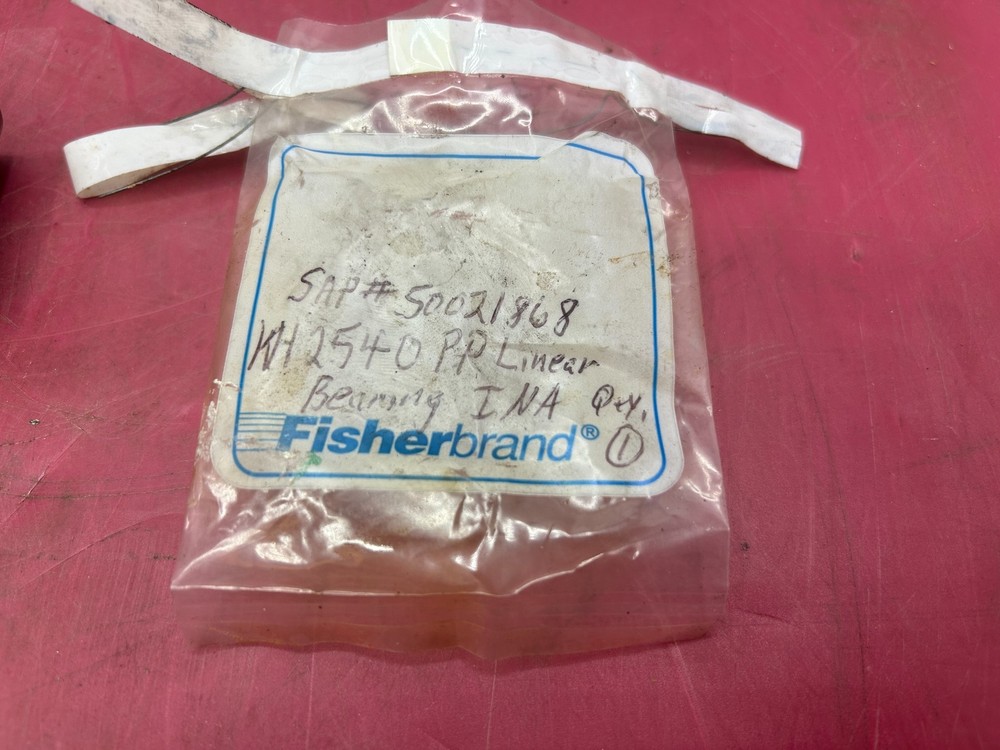 SAP# 50021868
KH 2540 PP Linear
Bearing INA Qty.
Fisherbrand® 1